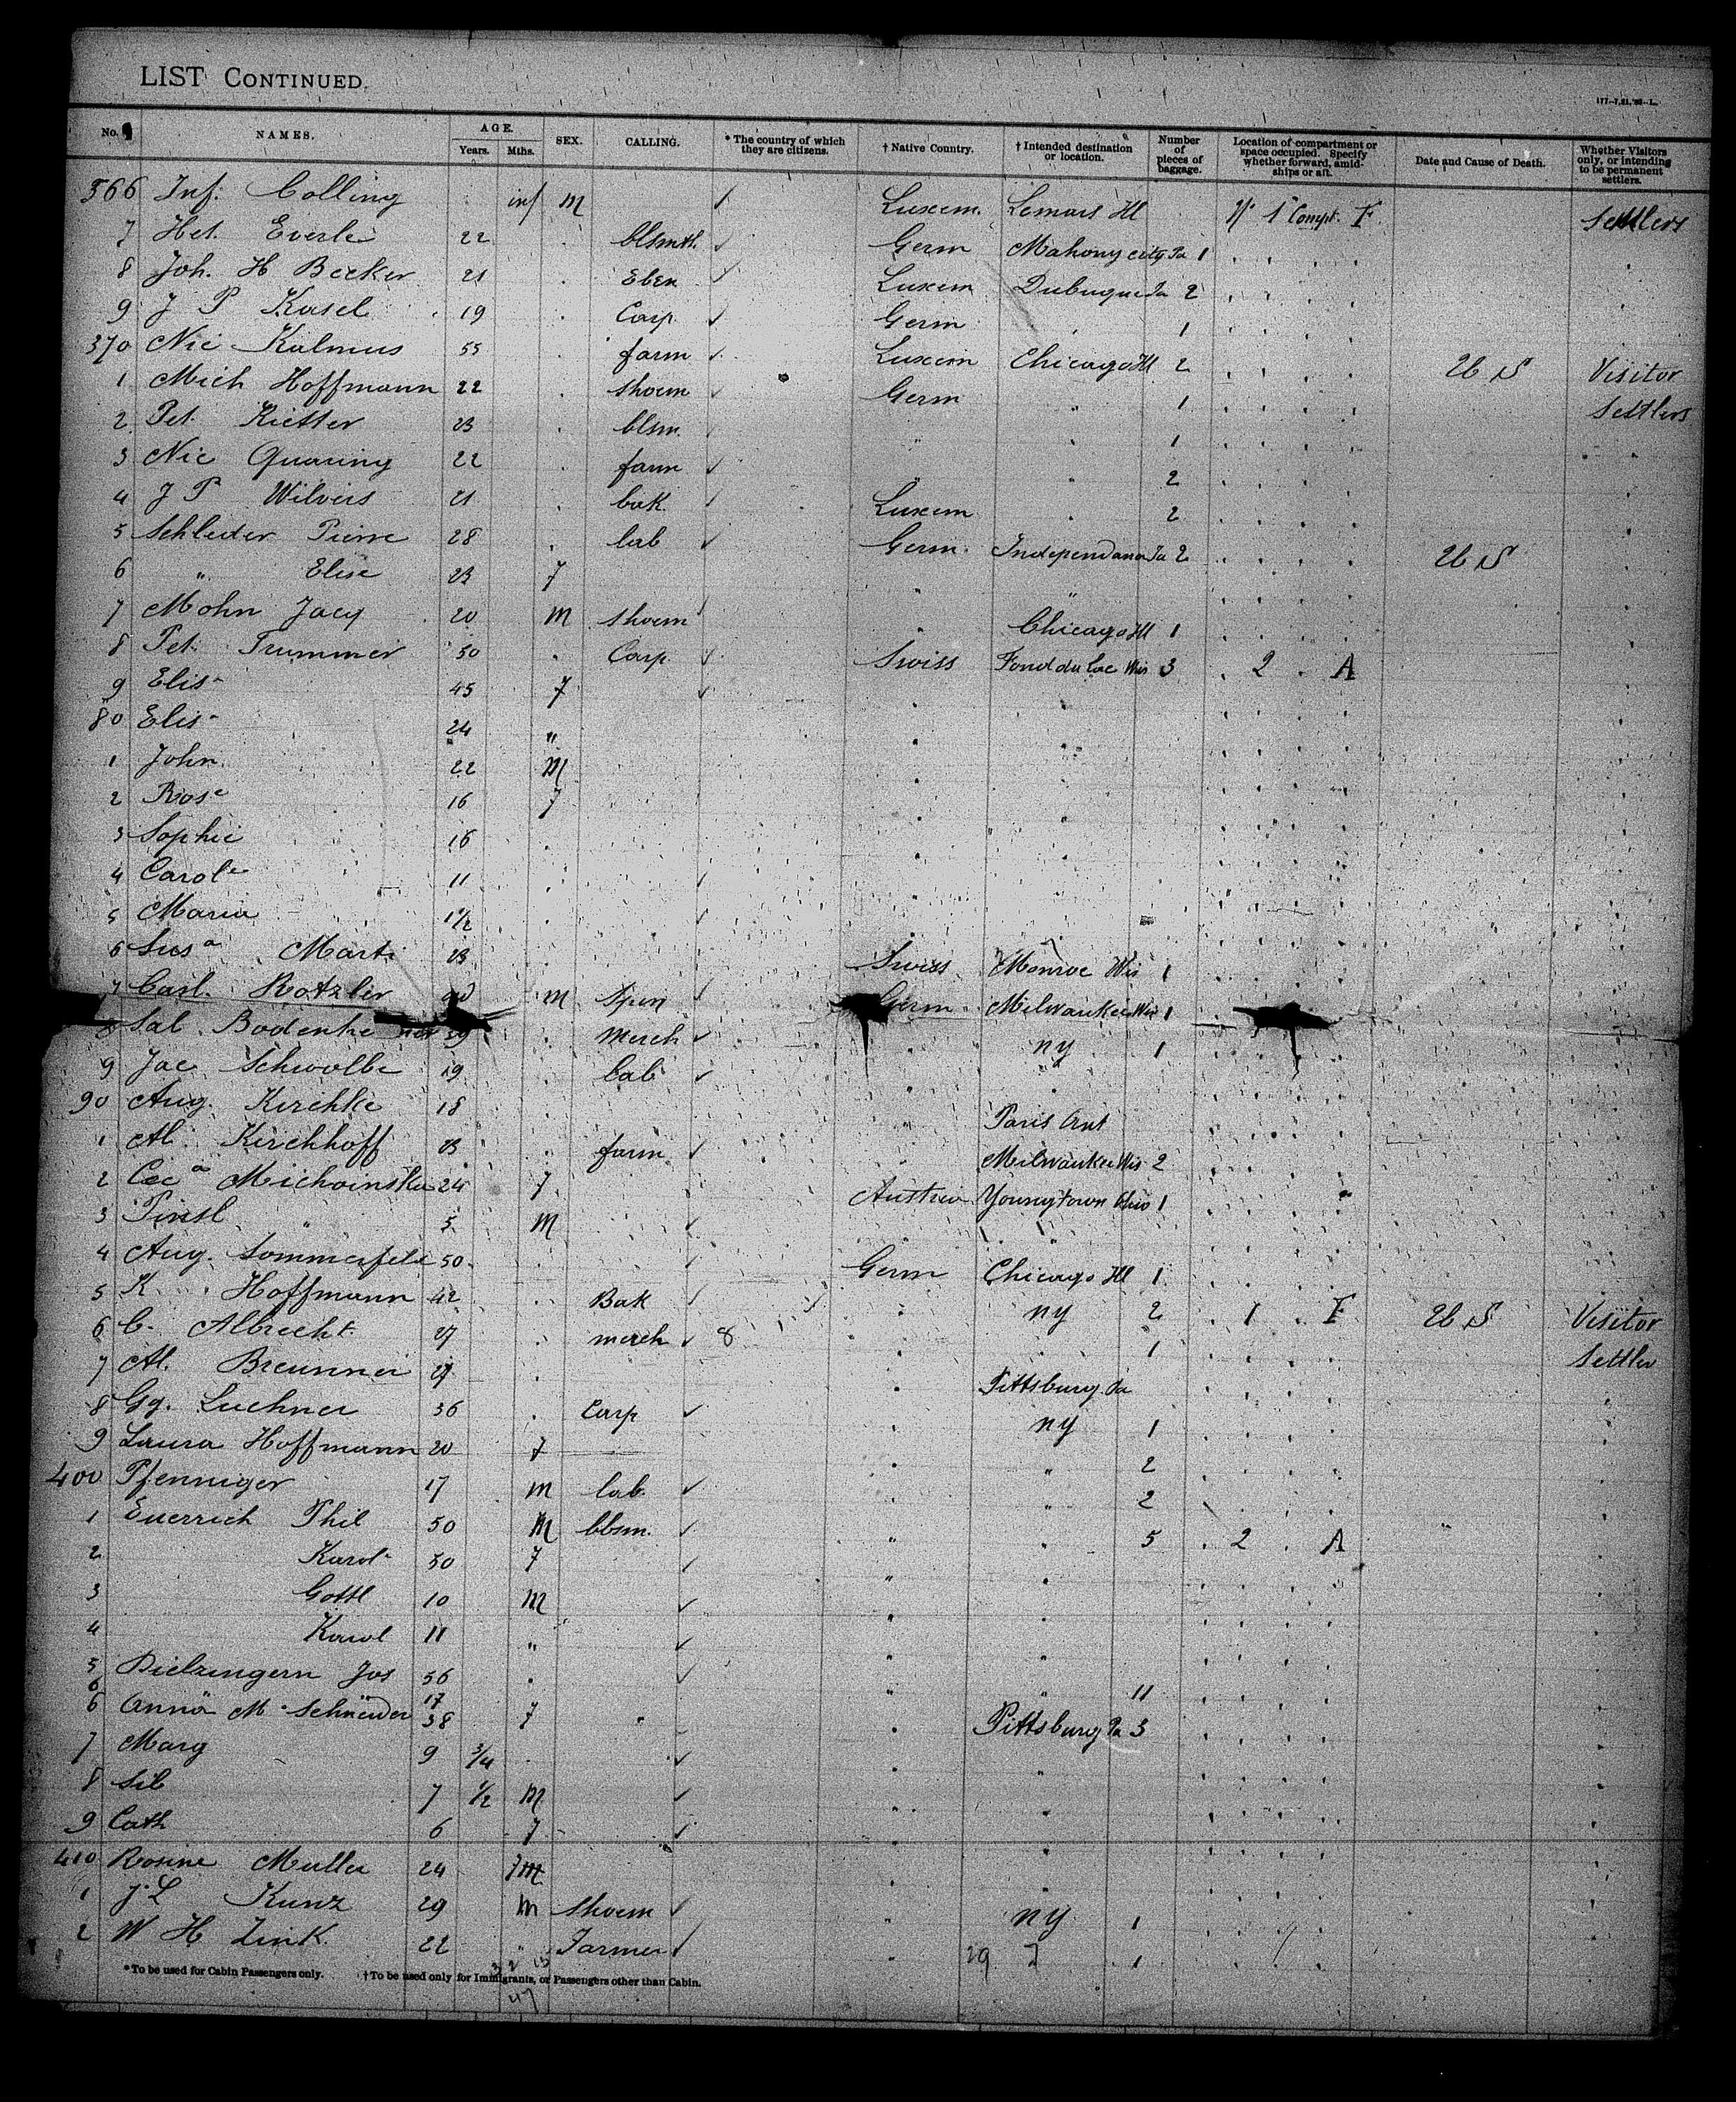 LIST CONTINUED.
177—7, 21, '92—L.
No. NAMES. AGE. Years. Mths. SEX. CALLING. * The country of which they are citizens. † Native Country. † Intended destination or location. Number of pieces of baggage. Location of compartment or space occupied. Specify whether forward, amidships or aft. Date and Cause of Death. Whether Visitors only, or intending to be permanent settlers.
366 Inf. Colling inf m ✓ Luxem. Lemars Ill 1 Compt. F. Settlers
7 Het. Everle 22 . blsmth. ✓ Germ Mahony city Pa 1
8 Joh. H Becker 21 . Eben ✓ Luxem Dubuque Ia 2
9 J P Kasel 19 . Carp ✓ Germ . 1
370 Nic Kalmus 55 . farm ✓ Luxem Chicago Ill 2 Visitor
1 Mich Hoffmann 22 . shoem ✓ Germ " 1 Settlers
2 Pet. 23 . blsm. " . 1
3 Nic Quaring 22 . farm ✓ " " 2
4 J P 21 . bak. Luxem . 2
5 Schleder Pierre 28 . lab ✓ Germ. Ia 2
6 " Elise 23 f " "
7 Mohn Jacq 20 m shoem " Chicago Ill 1
8 Pet. Trummer 50 . Carp ✓ Swiss Fond du Lac Wis 3 . 2 . A
9 Elisa 45 f ✓
80 Elisa 24 "
1 John 22 M
2 Rosa 16 f
3 Sophie 16 .
4 Carole 11 .
5 Maria 1 1/2 .
6 Susa Marti 23 Swiss Monroe Wis 1
7 Carl. Rotzler m ✓ Germ Milwaukee Wis 1
8 Sal 39 . Merch ✓ . ny 1
9 Jac Schwolbe 19 . lab ✓ .
90 Aug. Kirchke 18 . " Paris Ont
1 Al. Kirchhoff 23 . farm ✓ . Milwaukee Wis 2
2 Ceca Michoinska 24 f Austria Youngtown Ohio 1
3 " 5 M ✓ "
4 Aug. Sommerfeld 50 . Germ Chicago Ill 1
5 K. Hoffmann 42 . Bak ✓ . ny 2 . 1 . F Visitor
6 C. Albrecht 27 . merch ✓ 8 . . 1 Settler
7 Al. Breunner 27 . . Pittsburg Pa
8 Gg. Luchner 36 . Carp ✓ . ny 1
9 Laura Hoffmann 20 f . " 2
400 Pfenniger 17 m lab. ✓ . " 2
1 Euerrich Phil 50 M blsm. ✓ " . 5 . 2 . A
2 Karol. 50 f ✓ " .
3 Gottl 10 M ✓ " .
4 Karol 11 " ✓ " "
5 Jos 56 . ✓ " " 11
6 Anna M. Schneider 38 f . Pittsburg Pa 3
7 Marg 9 3/4 . ✓ . "
8 Sib 7 1/2 M ✓ " "
9 Cath 6 f ✓ . .
410 Rosine Muller 24 . "
1 J. L Kunz 29 m shoem ✓ " ny 1
2 W H Zink 22 " Farmer ✓ " 1
* To be used for Cabin Passengers only. † To be used only for Immigrants, or Passengers other than Cabin.
47